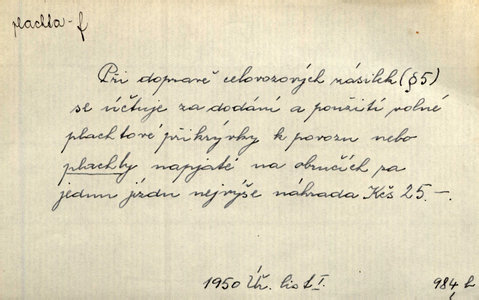 plachta - f
Při dopravě celovozových zásilek (§ 5)
se účtuje za dodání a použití volné
plachtové přikrývky k povozu nebo
plachty napjaté na obručích za
jednu jízdu nejvýše náhrada Kčs 25.-.
1950 Úř. list I.
984